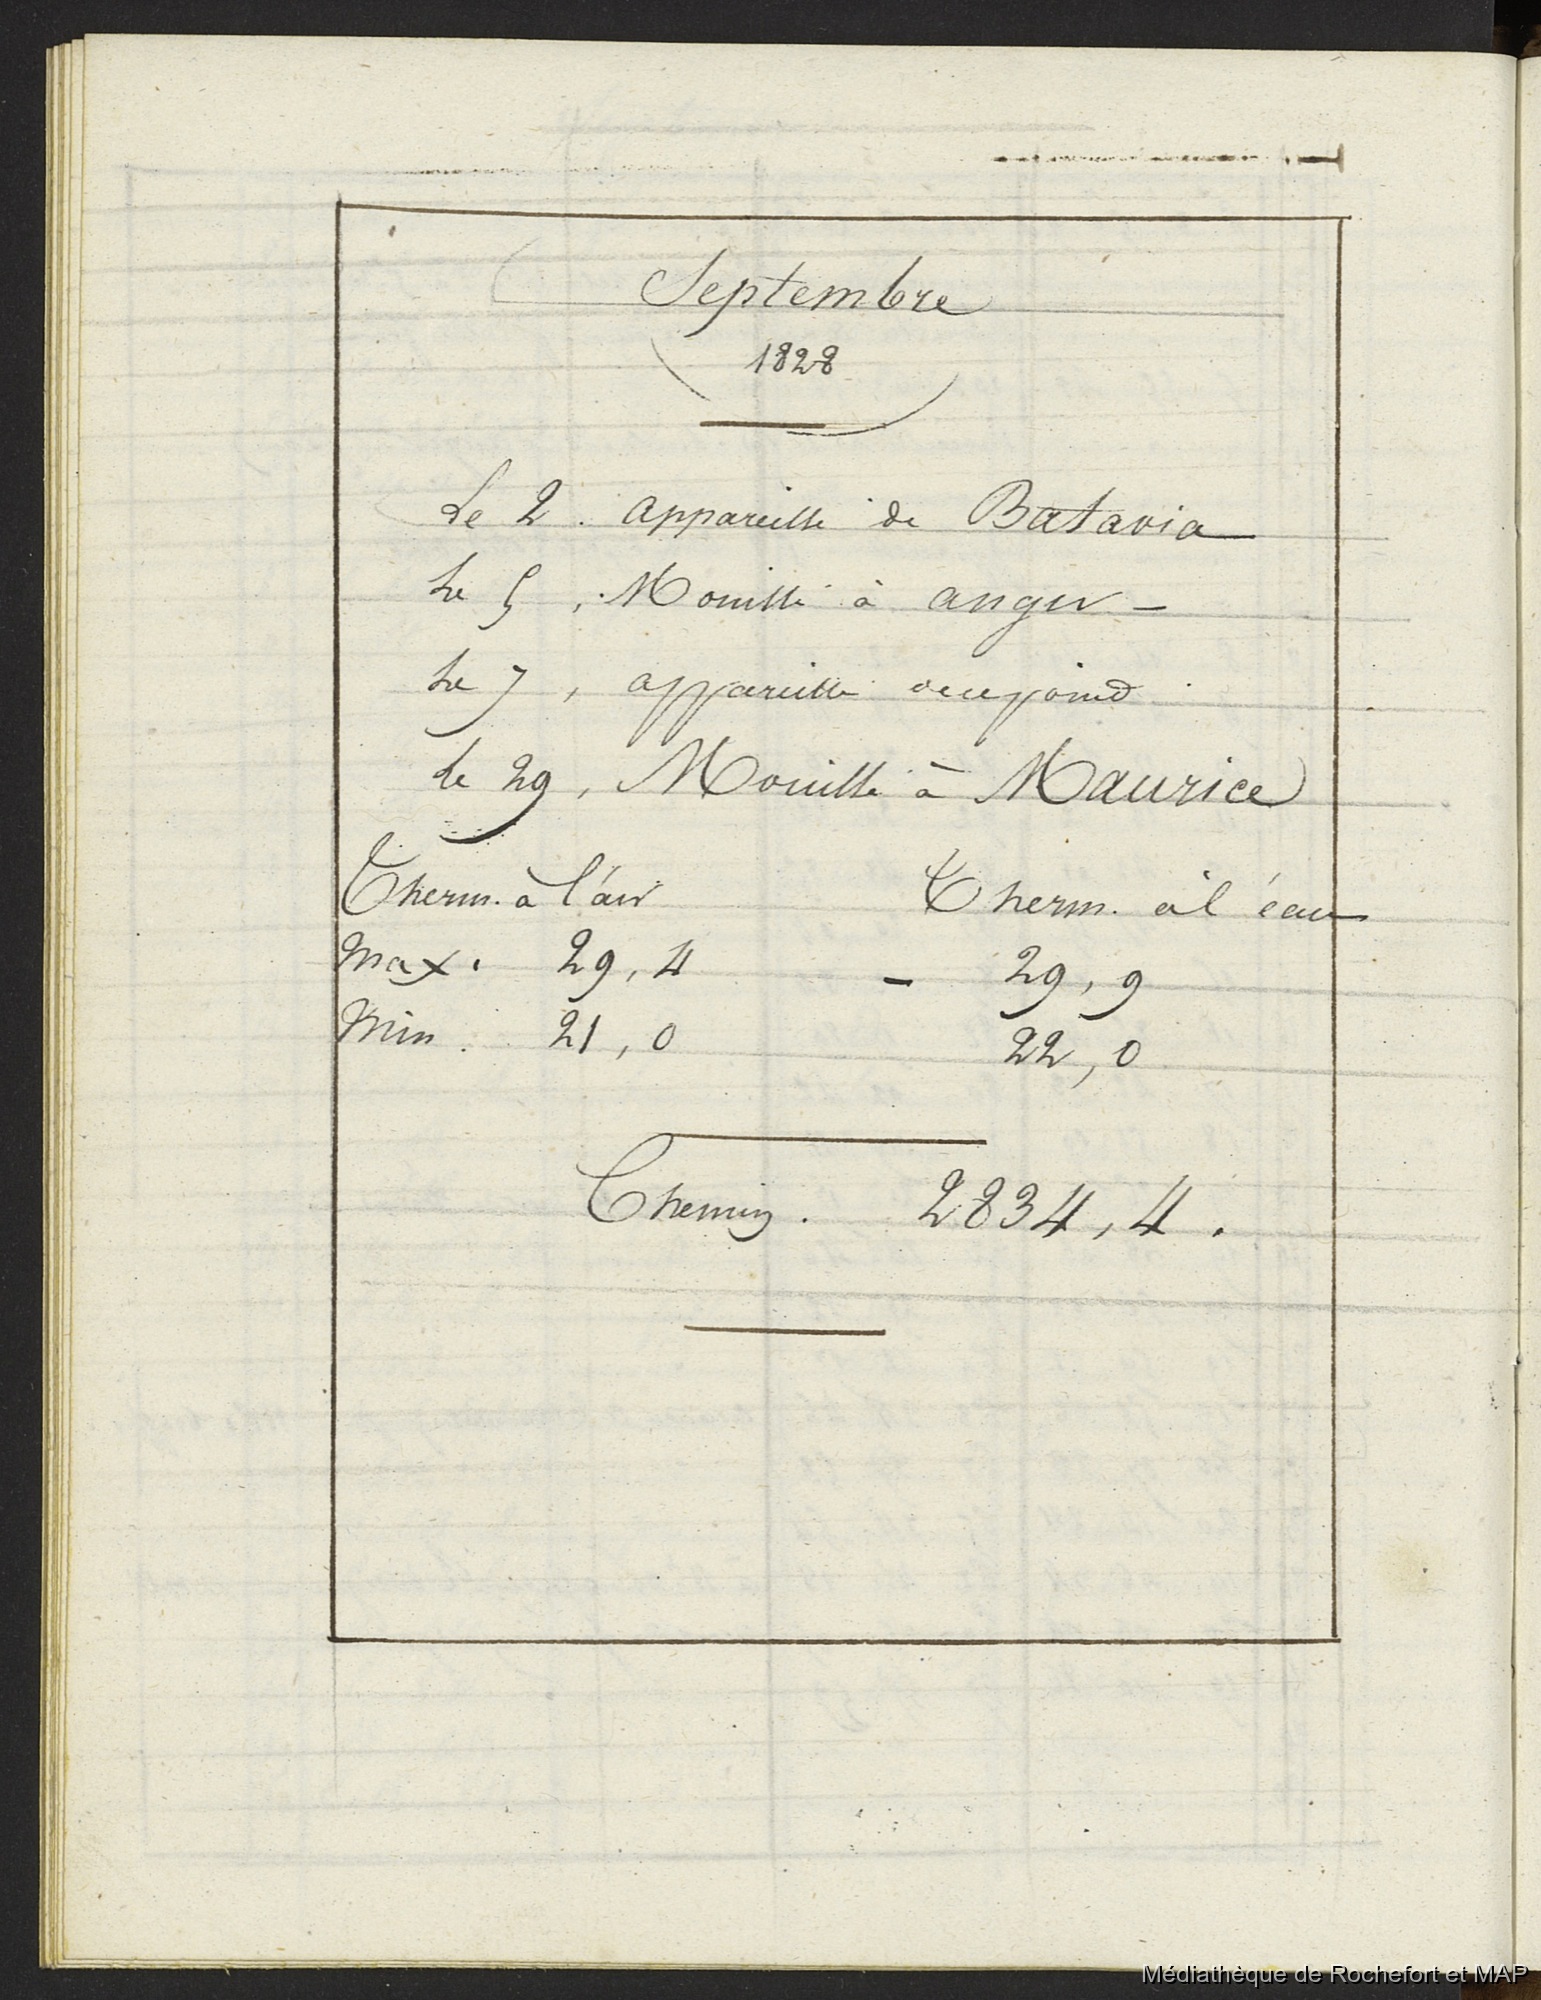 Septembre
1828
Le 2. appareillé de Batavia
Le 5, Mouillé à anger –
Le 7, appareillé
Le 29, Mouillé à Maurice
Therm. à l'air Therm. à l'éau
Max. 29,4 – 29,9
Min. 21,0 22,0
Chemin. 2834,4.
Médiathèque de Rochefort et MAP